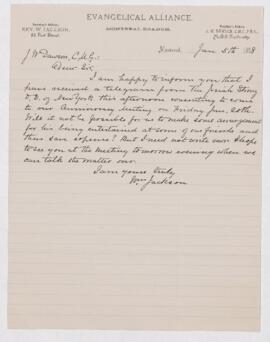 EVANGELICAL ALLIANCE.
MONTREAL BRANCH.
REV. W. JACKSON,
Montreal Jan. 5th 1883
J. W. Dawson, C.M.G.:
Dear Sir
I am happy to inform you that I
have received a telegram from Dr. Josiah Strong
of New York this afternoon consenting to come
to our Anniversary meeting on Friday Jan. 20th.
Will it not be possible for us to make some arrangement
for his being entertained at some of our friends and
thus save expense? But I need not write more. I hope
to see you at the meeting to morrow evening when we
can talk the matter over.
I am yours truly
Wm Jackson